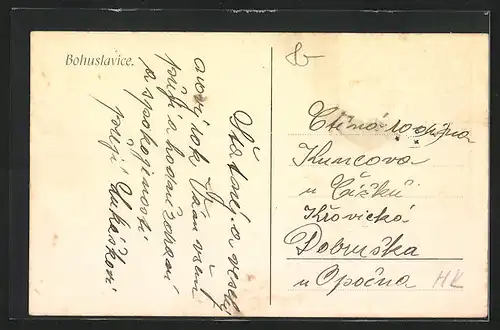 Bohuslavice.
Šťastný a veselý
nový rok Vám všem
přejí a hodně zdraví
a spokojenosti
přejí Lukáškovi
Ctěná rodina
Kuncova
u Čížků
Křovická
Dobruška
u Opočna
HK